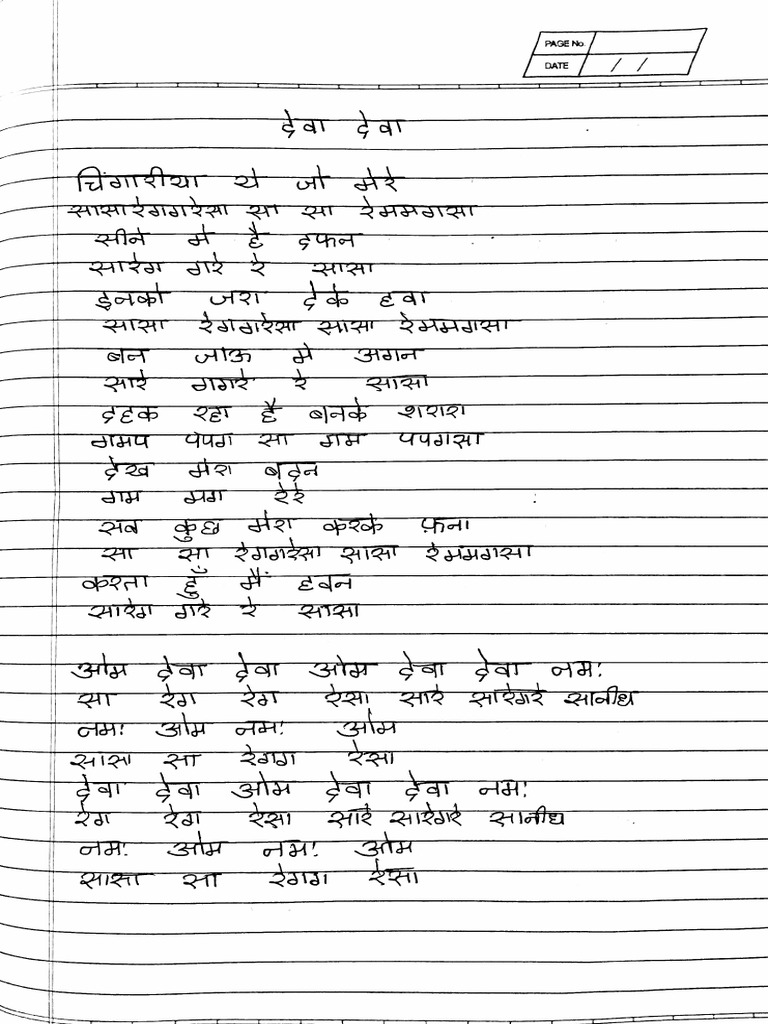 PAGE No.
DATE / /
देवा देवा
चिंगारीया ये जो मेरे
सासारेगगरेसा सा सा रेममगसा
सीने मे है दफन
सारेग गरे रे सासा
इनको जरा देके हवा
सासा रेगगरेसा सासा रेममगसा
बन जाऊ मे अगन
सारे गगरे रे सासा
दहक रहा है बनके शरारा
गमप पपग सा गम पपगसा
देख मेरा बदन
गम मग रेरे
सब कुछ मेरा करके फ़ना
सा सा रेगगरेसा सासा रेममगसा
करता हुँ मैं हवन
सारेग गरे रे सासा
ओम देवा देवा ओम देवा देवा नमः
सा रेग रेग रेसा सारे सारेगरे सानीध
नमः ओम नमः ओम
सासा सा रेगग रेसा
देवा देवा ओम देवा देवा नमः
रेग रेग रेसा सारे सारेगरे सानीध
नमः ओम नमः ओम
सासा सा रेगग रेसा